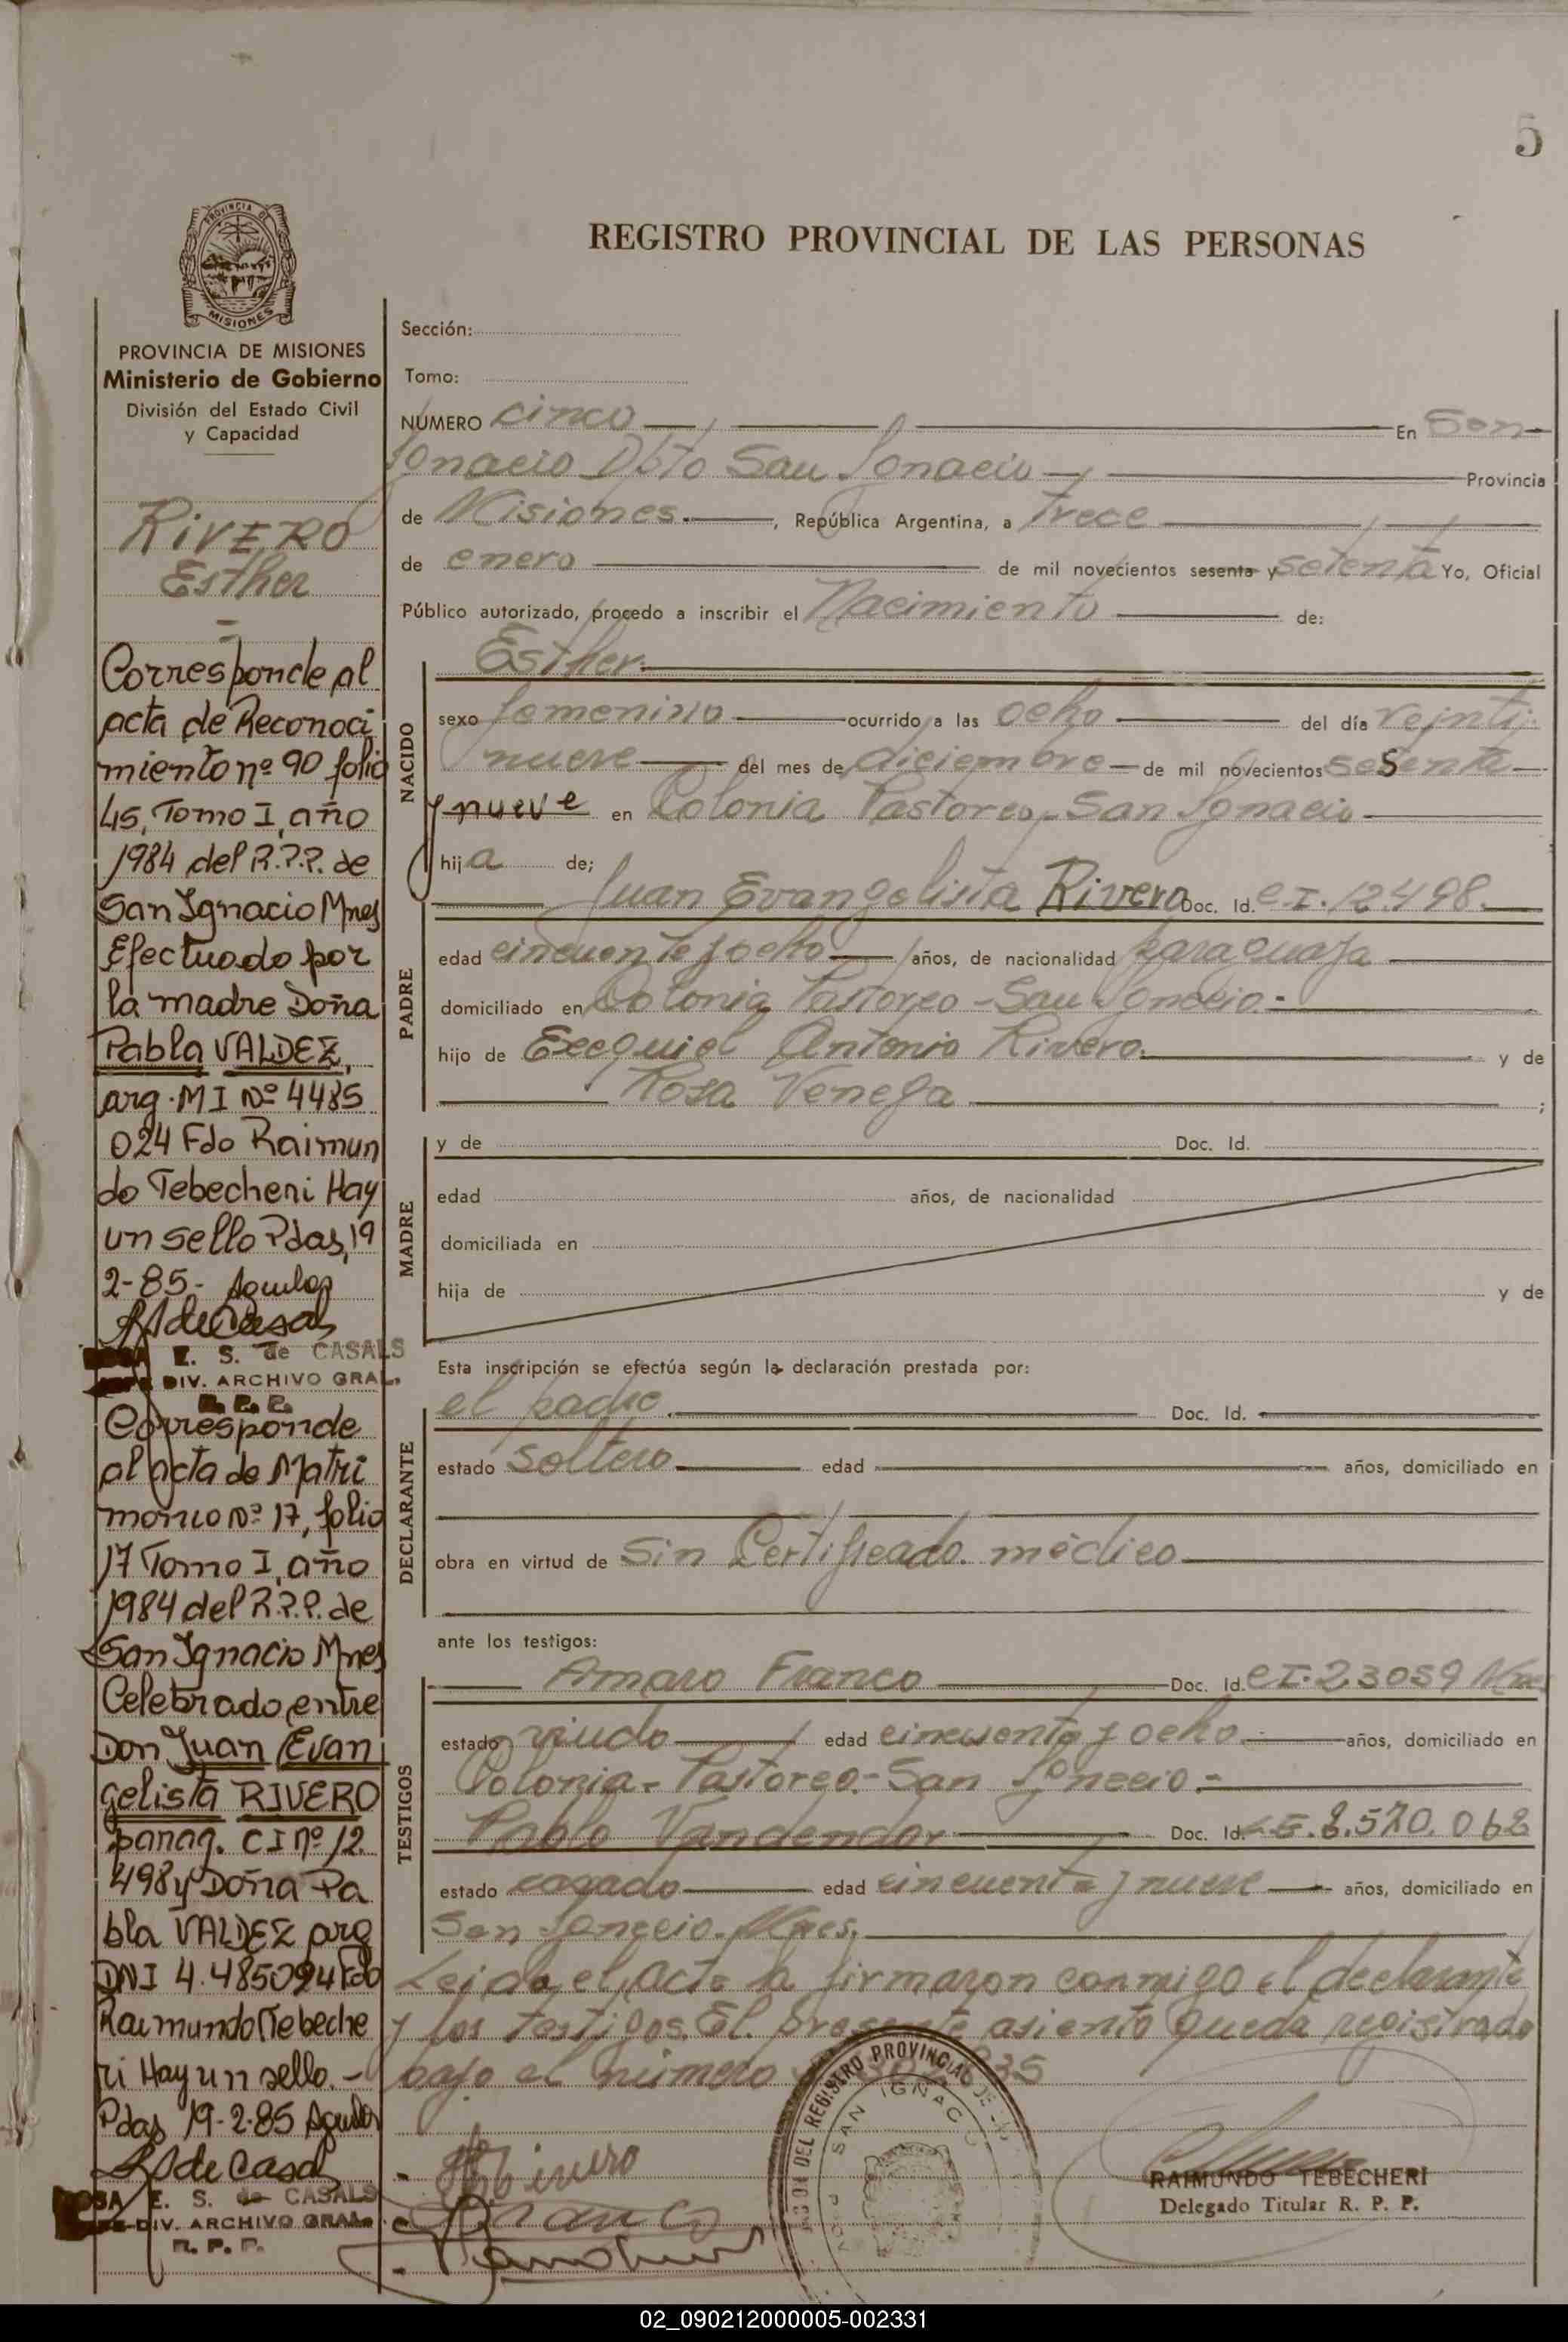 5
PROVINCIA DE
MISIONES
REGISTRO PROVINCIAL DE LAS PERSONAS
PROVINCIA DE MISIONES
Ministerio de Gobierno
División del Estado Civil
y Capacidad
RIVERO
Esther
=
Corresponde al
acta de Reconoci
miento nº 90 folio
45, Tomo I, año
1984 del R.P.P. de
San Ignacio Mnes
Efectuado por
la madre Doña
Pabla VALDEZ,
arg. MI Nº 4485
024 Fdo Raimun
do Tebecheri Hay
un sello Pdas, 19
2-85-
E. S. de CASALS
DIV. ARCHIVO GRAL.
R. P. P.
Corresponde
al acta de Matri
monio Nº 17, folio
17 Tomo I, año
1984 del R.P.P. de
San Ignacio Mnes
Celebrado entre
Don Juan Evan
gelista RIVERO
parag. CI nº 12.
498 y Doña Pa
bla VALDEZ arg
DNI 4.485094 Fdo
Raimundo Tebeche
ri Hay un sello.-
Pdas 19-2-85
E. S. de CASALS
DIV. ARCHIVO GRAL.
R. P. P.
Sección:
Tomo:
NUMERO cinco En San
Ignacio Dpto San Ignacio Provincia
de Misiones.-, República Argentina, a trece
de enero de mil novecientos sesenta y setenta Yo, Oficial
Público autorizado, procedo a inscribir el Nacimiento de:
NACIDO
Esther.
sexo femenino ocurrido a las ocho del día veinti
nueve del mes de diciembre de mil novecientos sesenta
y nueve en Colonia Pastoreo - San Ignacio
hija de;
PADRE
Juan Evangelista Rivero Doc. Id. C.I. 12.498.
edad cincuenta y ocho años, de nacionalidad paraguaya
domiciliado en Colonia Pastoreo - San Ignacio.-
hijo de Exequiel Antonio Rivero. y de
Rosa Venega ;
MADRE
y de Doc. Id.
edad años, de nacionalidad
domiciliada en
hija de y de
Esta inscripción se efectúa según la declaración prestada por:
DECLARANTE
el padre. Doc. Id.
estado soltero edad años, domiciliado en
obra en virtud de Sin Certificado médico
ante los testigos:
TESTIGOS
Amaro Franco Doc. Id. C.I. 23059 Mnes
estado viudo edad cincuenta y ocho años, domiciliado en
Colonia - Pastoreo - San Ignacio -
Pablo Vandendor Doc. Id. L.E. 8.570.062
estado casado edad cincuenta y nueve años, domiciliado en
San Ignacio. Mnes.
Leida el acta la firmaron conmigo el declarante
y los testigos. El presente asiento queda registrado
bajo el número
DEL REGISTRO PROVINCIAL DE
SAN IGNACIO
RAIMUNDO TEBECHERI
Delegado Titular R. P. P.
02_090212000005-002331